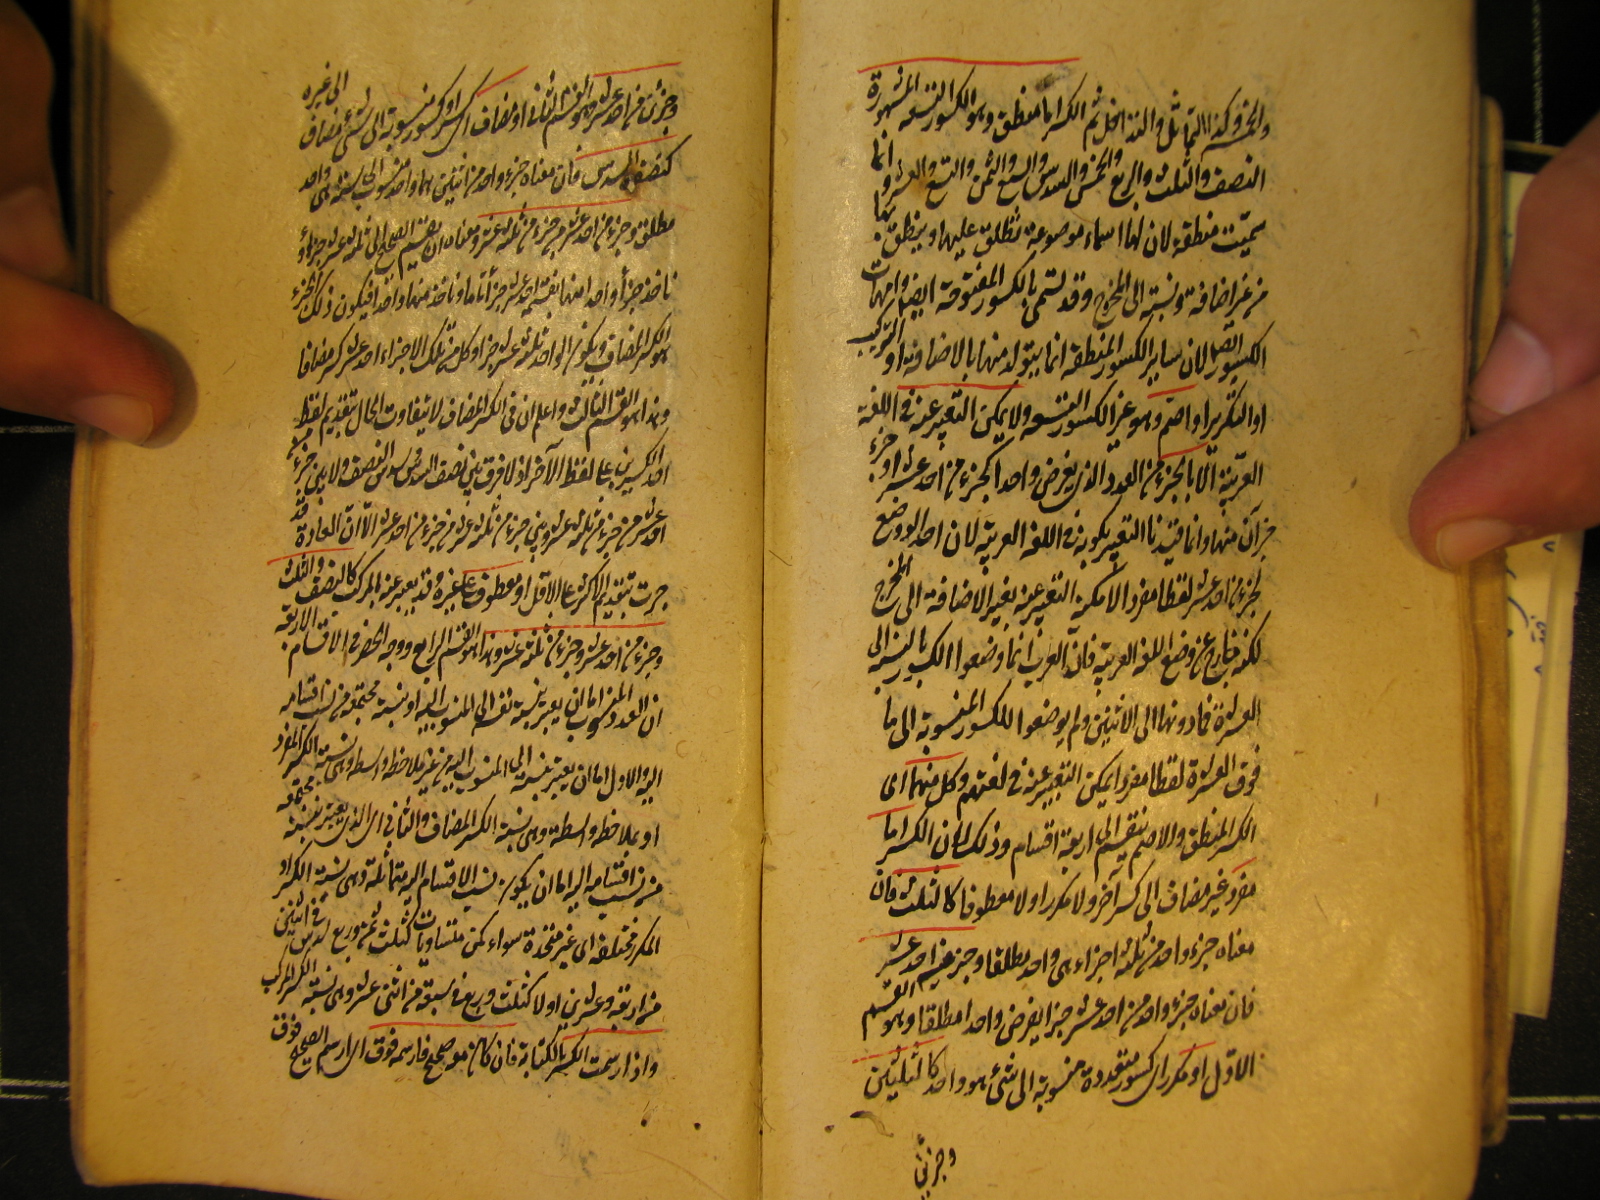 والمخرج وكذا التماثل والتداخل ثم الكسر اما منطق وهو الكسور التسعة المشهورة
النصف والثلث والربع والخمس والسدس والسبع والثمن والتسع والعشر وانما
سميت منطقة لان لها اسماء موضوعة تطلق عليها وينطق بها
من غير اضافة ونسبة الى المخرج وقد تسمى بالكسور المفتوحة ايضا وامهات
الكسور ايضا لان ساير الكسور المنطقة انما يتولد منها بالاضافة او التركيب
او التكرير او اصم وهو غير الكسور التسعة ولا يمكن التعبير عنه في اللغة
العربية الا بالجزء من العدد الذي يفرض واحدا كجزء من احد عشر او جزء
جزآن منها وانما قيدنا التعبير بكونه في اللغة العربية لان احدا لو وضع
لجزء من احد عشر لفظا مفردا لامكنه التعبير عنه بغير الاضافة الى المخرج
لكنه خارج عن وضع اللغة العربية فان العرب انما وضعوا الكسر بالنسبة الى
العشرة فما دونها الى الاثنين ولم يوضعوا للكسور المنسوبة الى ما
فوق العشرة لفظا مفردا يمكن التعبير عنه في لغتهم وكل منهما اى
الكسر المنطق والاصم ينقسم الى اربعة اقسام وذلك لان الكسر اما
مفرد غير مضاف الى كسر آخر ولا مكرر ولا معطوفا كالثلث فان
معناه جزء واحد من ثلثة اجزاء هى واحد مطلقا وجزء من احد عشر
فان معناه جزء واحد من احد عشر جزا يفرض واحدا مطلقا وهو القسم
الاول او مكرر اى كسور متعددة منسوبة الى شئ هو واحد كالثلثين
وجزئى
وجزئين من احد عشر وهو القسم الثانى او مضاف اى كسر او كسور منسوبة الى شئ مضاف الى غيره
كنصف السدس فان معناه جزء واحد من اثنين هما واحد منسوب الى ستة هى واحد
مطلق وجزء من احد عشر من جزء من ثلثة عشر ومعناه ان يقسم الصحيح الى ثلثة عشر جزء او
ناخذ جزأ واحدا منها نقسمه احد عشر جزأ تاما وناخذ منها واحدا فيكون ذلك الجزء
هو الكسر المضاف ويكون الواحد ثلثة عشر جزا وكل من تلك الاجزاء احد عشر كسر مضافا
وهذا هو القسم الثالث واعلم ان في الكسر المضاف لا يتفاوت الحال بتقديم لفظ
احد الكسرين على لفظ الآخر اذ لا فرق بين نصف السدس وسدس النصف ولا بين جزء من
احد عشر من جزء من ثلثة عشر وبين جزء من ثلثة عشر من جزء من احد عشر الا ان العادة قد
جرت بتقديم الاكثر على الاقل او معطوف على غيره وقد يعبر عنه بالمركب كالنصف والثلث
وجزء من احد عشر وجزء من ثلثة عشر وهذا هو القسم الرابع ووجه الحصر في الاقسام الاربعة
ان العدد المنسوب اما ان يعتبر نسبة نفسه الى المنسوب اليه او نسبة مجتمعة من نسب اقسامه
اليه والاول اما ان يعتبر نسبته الى المنسوب اليه من غير ملاحظة واسطة وهى نسبة الكسر المفرد
او بملاحظة واسطة وهى نسبة الكسر المضاف والثانى اى الذى يعتبر نسبته مجتمعة
من نسب اقسامه اليه اما ان يكون نسب الاقسام اليه متماثلة وهى نسبة الكسر او
المكرر مختلفة اى غير متحدة سواء كن متساويات كثلث ثمن وربع لسدس في اثنين
من اربعة وعشرين او لا كثلث وربع في سبعة من اثنى عشر وهى نسبة الكسر المركب
واذا رسمت الكسر بالكتابة فان كان معه صحيح فارسمه فوق اى ارسم الصحيح فوق